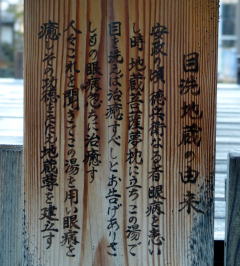 目洗地蔵の由来
安政の頃 徳兵衛なる者眼病を患い
し時 地蔵菩薩夢枕に立ちこの湯で
目を洗えば治癒すべしとお告げありさ
しもの眼病忽ちに治癒す
人々これを聞きこの湯を用い眼病を
癒しその功徳をたたえ地蔵尊を建立す